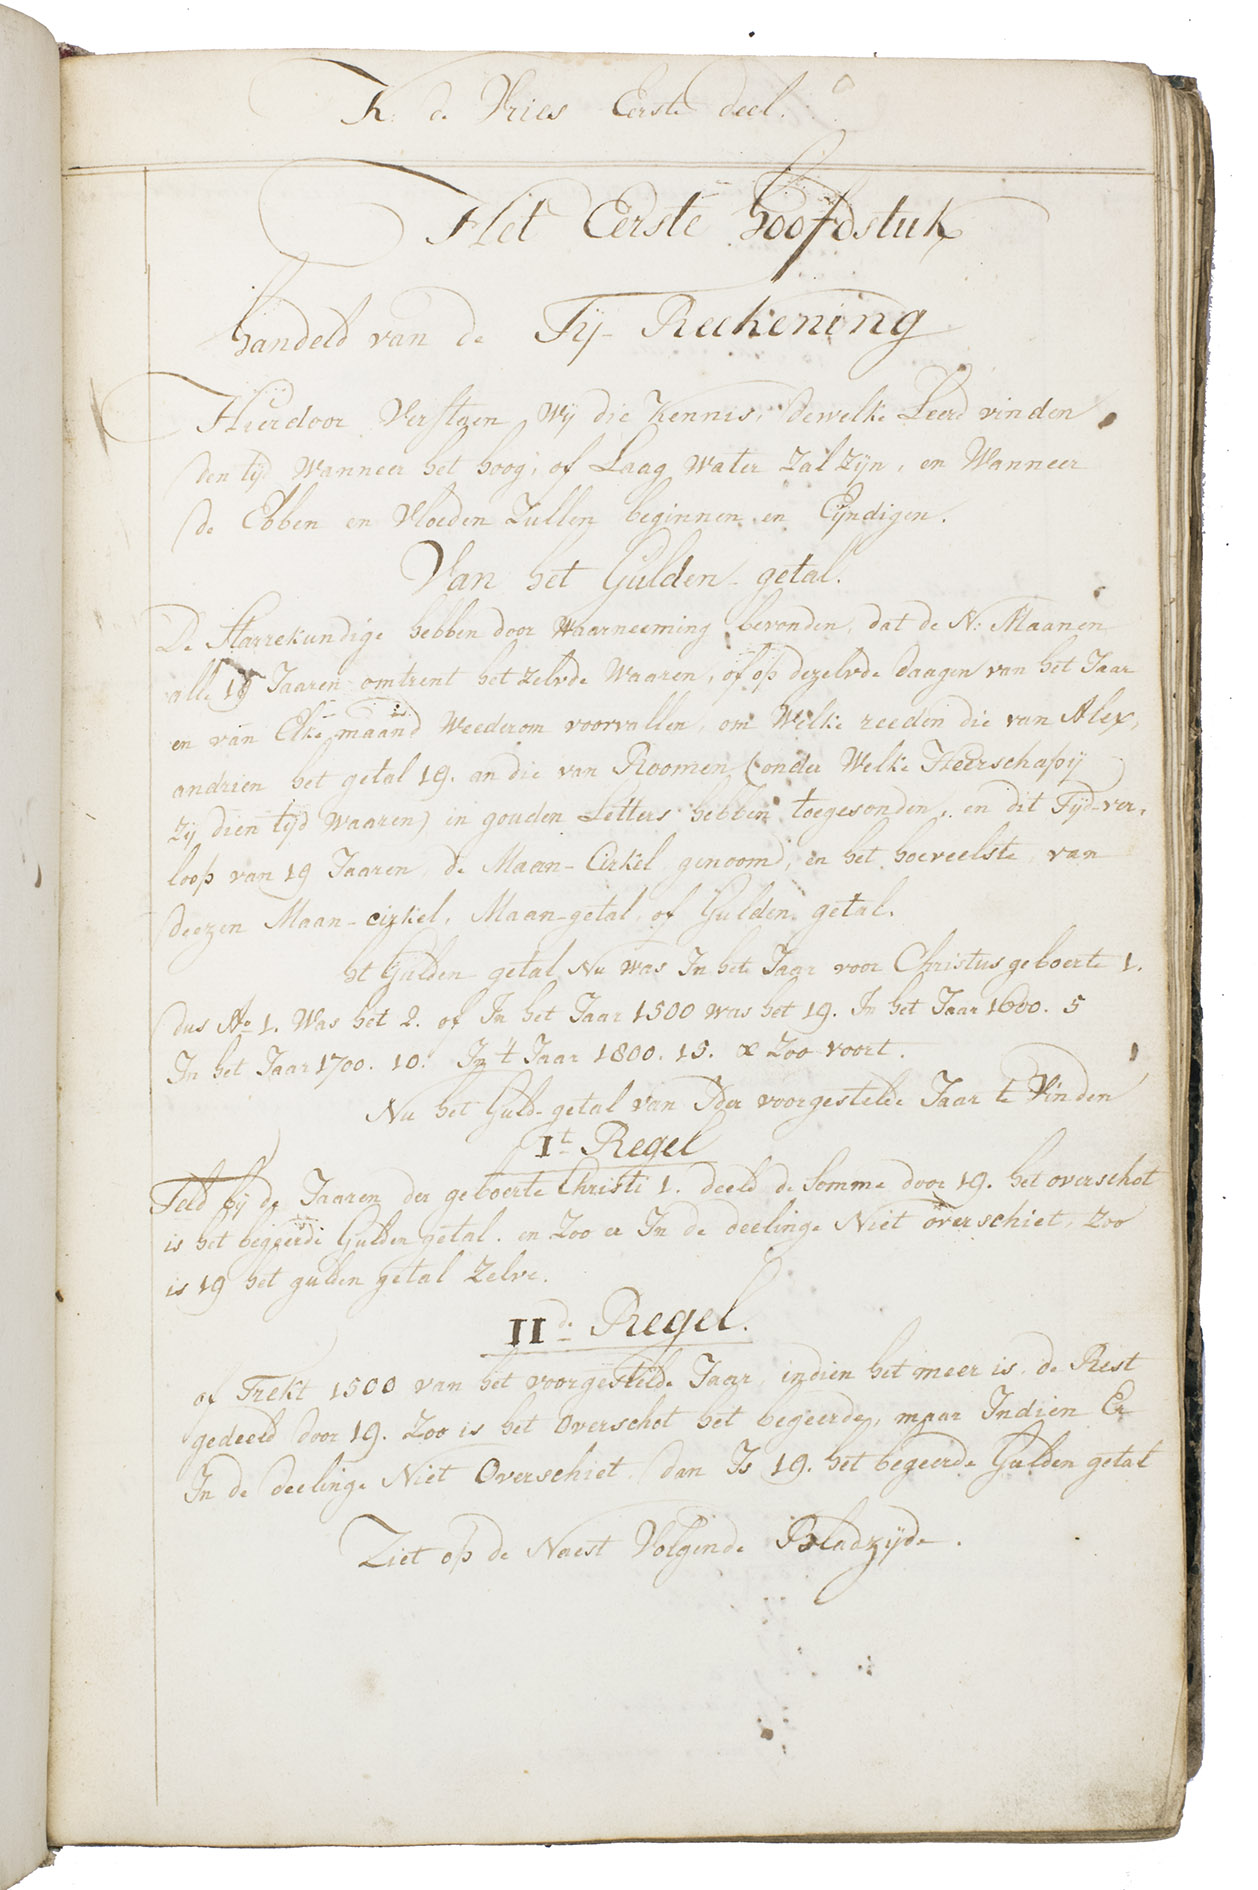 K: de Vries Eerste deel.
Het Eerste hoofdstuk
handeld van de Tij-Reekening
Hierdoor Verstaen Wij die Kennis, dewelke Leerd vinden
den tijd Wanneer het hoog, of Laag Water Zal Zijn, en Wanneer
de Ebben en Vloeden Zullen beginnen en Eijndigen.
Van het Gulden-getal.
De Starrekundige hebben door Waarneeming bevonden, dat de N: Maanen
alle 19 Jaaren omtrent het Zelvde Waaren, of op dezelvde daagen van het Jaar
en van Elke maand Weederom voorvallen, om Welke reeden die van Alex,
andrien het getal 19. an die van Roomen (onder Welke Heerschapij
Zij dien tijd Waaren) in gouden Letters hebben toegesonden, en dit Tijd-ver,
loop van 19 Jaaren de Maan-Cirkel genoomd, en het hoeveelste van
deezen Maan-cirkel, Maan-getal, of Gulden getal.
het Gulden getal Nu was In het Jaar voor Christus geboorte 1.
dus Ao 1. Was het 2. of In het Jaar 1500 was het 19. In het Jaar 1600. 5
In het Jaar 1700. 10. In 't Jaar 1800. 15. & Zoo voort.
Nu het Guld-getal van Ider voorgestelde Jaar te Vinden
It Regel
Teld bij de Jaaren der geboorte Christi 1. deeld de Somme door 19. het overschot
is het begeerde Gulden getal. en Zoo er In de deelinge Niet overschiet, Zoo
is 19 het gulden getal Zelve.
IIde Regel.
of Trekt 1500 van het voorgestelde Jaar, indien het meer is, de Rest
gedeeld door 19. Zoo is het Overschot het begeerde, maar Indien Er
In de deelinge Niet Overschiet, dan Is 19. het begeerde Gulden getal
Ziet op de Naest Volgende Bladzijde.